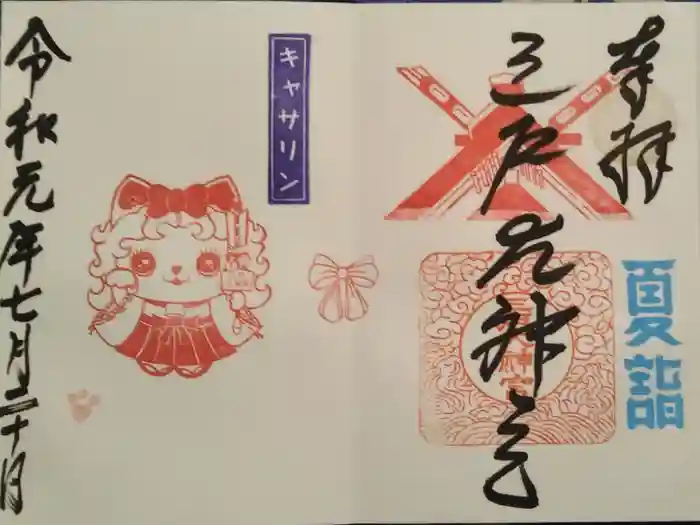 奉拝
夏詣
三戸大神宮
キャサリン
令和元年七月二十日